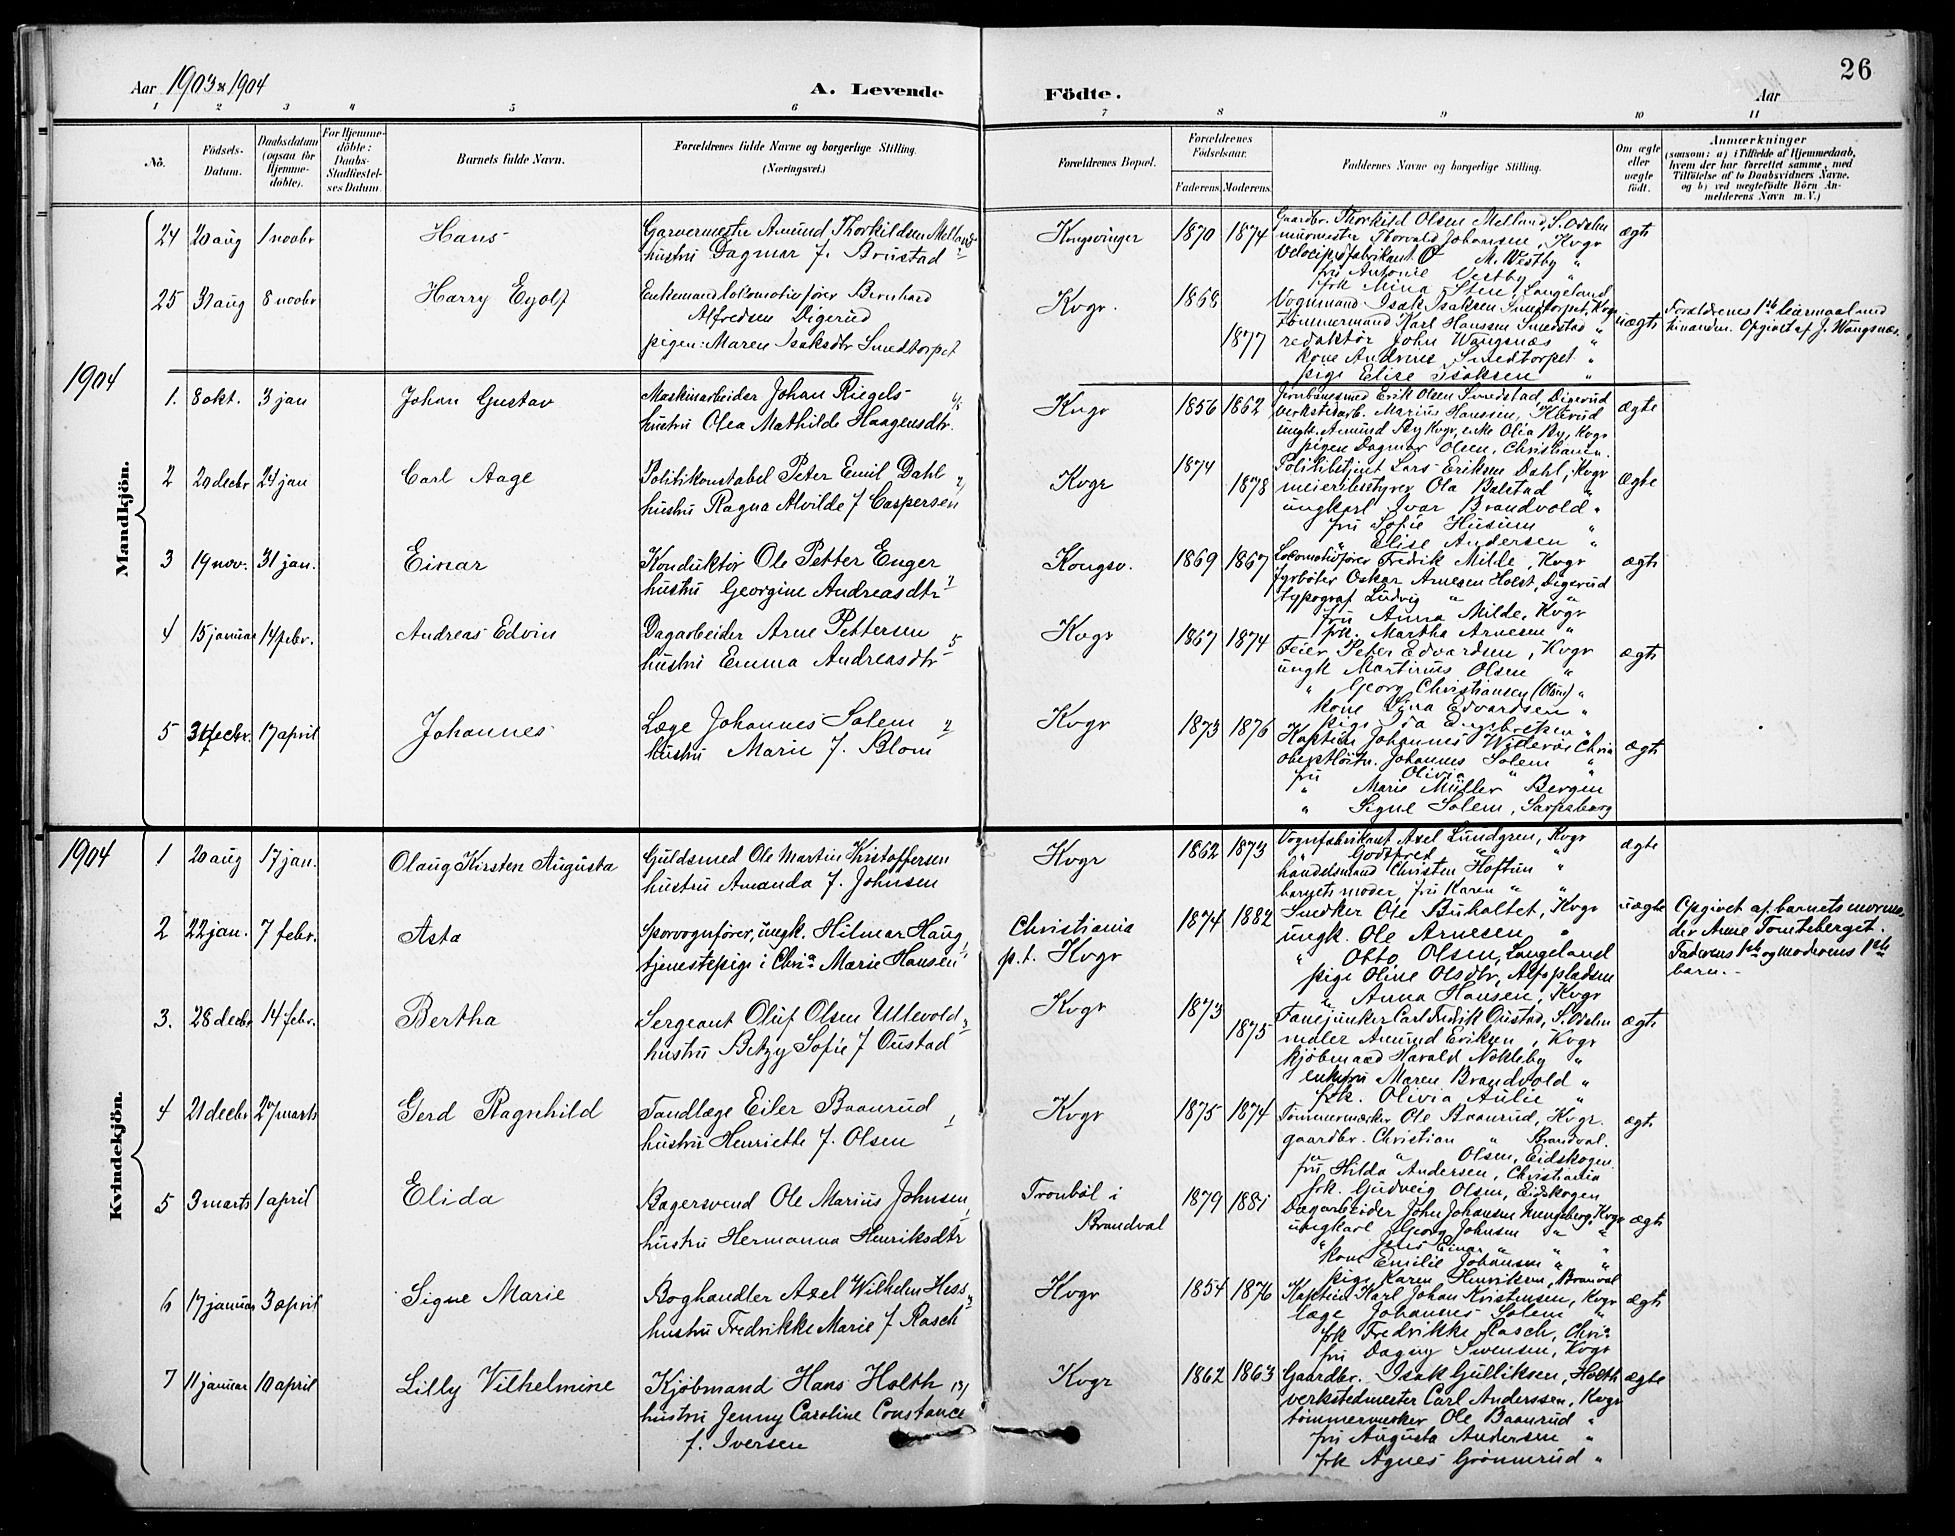 26
Aar 1903 & 1904
A. Levende Födte.
Aar
1 2 3 4 5 6 7 8 9 10 11
No.
Födsels-Datum.
Daabsdatum (ogsaa for Hjemme-døbte).
For Hjemme-döbte: Daabs-Stadfæstel-ses Datum.
Barnets fulde Navn.
Forældrenes fulde Navne og borgerlige Stilling. (Næringsvei.)
Forældrenes Bopæl.
Forældrenes Födselsaar.
Faderens. Moderens.
Faddernes Navne og borgerlige Stilling.
Om ægte eller uægte födt.
Anmærkninger
(saasom: a) i Tilfælde af Hjemmedaab, hvem der har forrettet samme, med Tilföielse af to Daabsvidners Navne. og b) ved uægtefödte Börn An-melderens Navn m. V.)
Mandkjön.
24 20 aug 1 novbr Hans
Garvermester Amund Thorkildsen Melland
hustru Dagmar f. Brustad
Kongsvinger 1870 1874
Gaardbr. Thorkild Olsen Melland, S. Odalen
murmester Thorvald Johansen, Kvgr
Velocipedfabrikant O M. Vestby "
fru Antonie Vestby "
frk Mina Sten, Langeland
ægte
25 31 aug 8 novbr Harry Eyolf
Enkemand lokomotivfører Bernhard
Alfredsen Digerud
pigen: Maren Isaksdtr Smedtorpet
Kvgr. 1868 1877
Vognmand Isak Isaksen Smedtorpet, Kvgr
Tømmermand Karl Hanssen Smedstad "
redaktør John Wangsnæs "
kone Andrine Smedtorpet "
pige Elise Isaksen "
uægte
Forældrenes 1ste leiermaal med
hinanden. Opgivet af J. Wangsnæs.
1904
1. 8 okt. 3 jan Johan Gustav
Maskinarbeider Johan Riegels-
hustru Olea Mathilde Haagensdtr.
Kvgr 1856 1862
Jernbanesmed Erik Olsen Smedstad, Digerud
verkstedarb. Marius Hanssen,
ungk. Amund By Kvgr, enke Olia By, Kvgr
pigen Dagmar Olsen, Christiania.
ægte
2 20 decbr 24 jan Carl Aage
Politikonstabel Peter Emil Dahl
hustru Ragna Alvilde f Caspersen
Kvgr 1874 1878
Politibetjent Lars Eriksen Dahl, Kvgr
meieribestyrer Ola Balstad "
ungkarl Ivar Brandvold "
fru Sofie Husum "
" Elise Andersen "
ægte
3 19 nov. 31 jan. Einar
Konduktør Ole Petter Enger
hustru Georgine Andreasdtr
Kongsv. 1869 1867
Lokomotivfører Fredrik Milde, Kvgr
fyrbøter Oskar Arnesen Holst, Digerud
typograf Ludvig " "
fru Anna Milde, Kvgr
frk. Martha Arnesen "
ægte
4 15 januar 14 febr. Andreas Edvin
Dagarbeider Arne Pettersen 5
hustru Emma Andreasdtr
Kvgr 1867 1874
Feier Peter Edvardsen, Kvgr
ungk Martinus Olsen "
" Georg Christiansen (Olsen) "
kone Lina Edvardsen "
pige Ida Engebretsen "
ægte
5 31 decbr. 17 april Johannes
Læge Johannes Solem 2
hustru Marie f. Blom
Kvgr 1873 1876
Kaptein Johannes Chria
oberstløitn. Johannes Solem "
fru Olivia " "
" Marie Müller Bergen
" Signe Solem, Sarpsborg
ægte
Kvindekjön.
1904
1 20 aug 17 jan. Olaug Kirsten Augusta
Guldsmed Ole Martin Kristoffersen
hustru Amanda f. Johnsen
Kvgr 1862 1873
Vognfabrikant Axel Lundgren, Kvgr
" Godtfred " "
handelsmand Christen Hoftun "
barnets moder, fru Karen " "
ægte
2 22 jan. 7 febr. Asta
Sporvognfører, ungk. Hilmar Haug
tjenestepige i Chria Marie Hansen
Christiania
p.t. Kvgr
1874 1882
Snedker Ole Buholtet, Kvgr
ungk. Ole Arnesen "
" Otto Olsen, Langeland
pige Oline Olsdtr, Alfspladsen
" Anna Hansen, Kvgr
uægte
Opgivet af barnets mormo-
der Anne Tomteberget.
Faderens 1ste og moderens 1ste
barn.-
3. 28 decbr 14 febr. Bertha
Sergeant Oluf Olsen Ullevold 3
hustru Betzy Sofie f Oustad
Kvgr 1873 1875
Fanejunker Carl Fredrik Oustad, S. Odalen
Amund Eriksen, Kvgr
kjøbmand Harald Nökleby "
enkefru Maren Brandvold "
frk. Olivia Aulie "
ægte
4 21 decbr 27 marts Gerd Ragnhild
Tandlæge Eiler Baanrud 1
hustru Henriette f. Olsen
Kvgr 1875 1874
Tømmermærker Ole Baanrud, Kvgr.
gaardbr. Christian " Brandval.
" " Olsen, Eidskogen
fru Hilda Andersen, Christiania
frk. Gudveig Olsen, Eidskogen
ægte
5 3 marts 1 april Elida
Bagersvend Ole Marius Johnsen 1
hustru Hermanna Henriksdtr
Tronböl i
Brandval
1879 1881
Dagarbeider John Johansen Kungsberg, Kvgr
ungkarl Georg Johnsen " "
" Jens Einar " " "
kone Emilie Johansen " "
pige Karen Henriksen, Branval
ægte
6 17 januar 3 april Signe Marie
Boghandler Axel Wilhelm Hess
hustru Fredrikke Marie f Rasch
Kvgr 1854 1876
Kaptein Karl Johan Kristensen, Kvgr
læge Johannes Solem "
frk Fredrikke Rasch, Chria
fru Dagny Svensen, Kvgr
ægte
7 11 januar 10 april Lilly Vilhelmine
Kjøbmand Hans Holth 13/
hustru Jenny Caroline Constance
f. Iversen
Kvgr 1862 1863
Gaardbr. Isak Gulliksen, Holth
verkstedmester Carl Anderssen, Kvgr
tømmermerker Ole Baanrud "
fru Augusta Andersen "
frk Agnes Grönnerud "
ægte